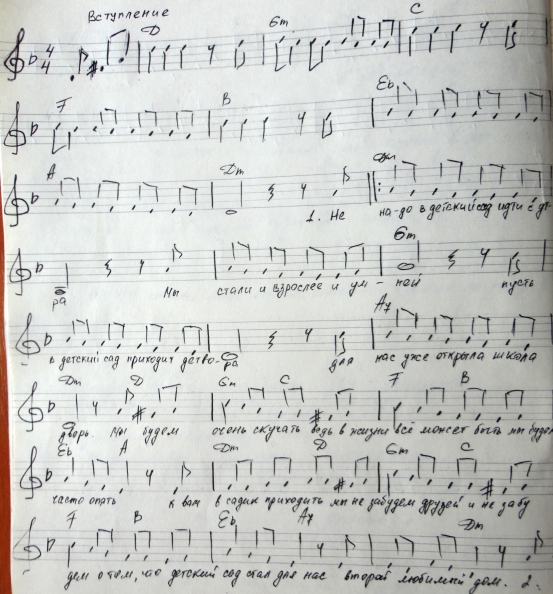 Вступление
4 4 D Gm C
F B Eb
A Dm Dm
1. Не на-до в детский сад идти с ут-
Gm
ра Мы стали и взрослее и ум-ней пусть
A7
в детский сад приходит детво-ра для нас уже открыла школа
Dm D Gm C F B
дверь. Мы будем очень скучать ведь в жизни всё может быть мы будем
Eb A Dm D Gm C
часто опять к вам в садик приходить мы не забудем друзей и не забу
F B Eb A7 Dm
дем о том, что детский сад стал для нас второй любимый дом. 2.